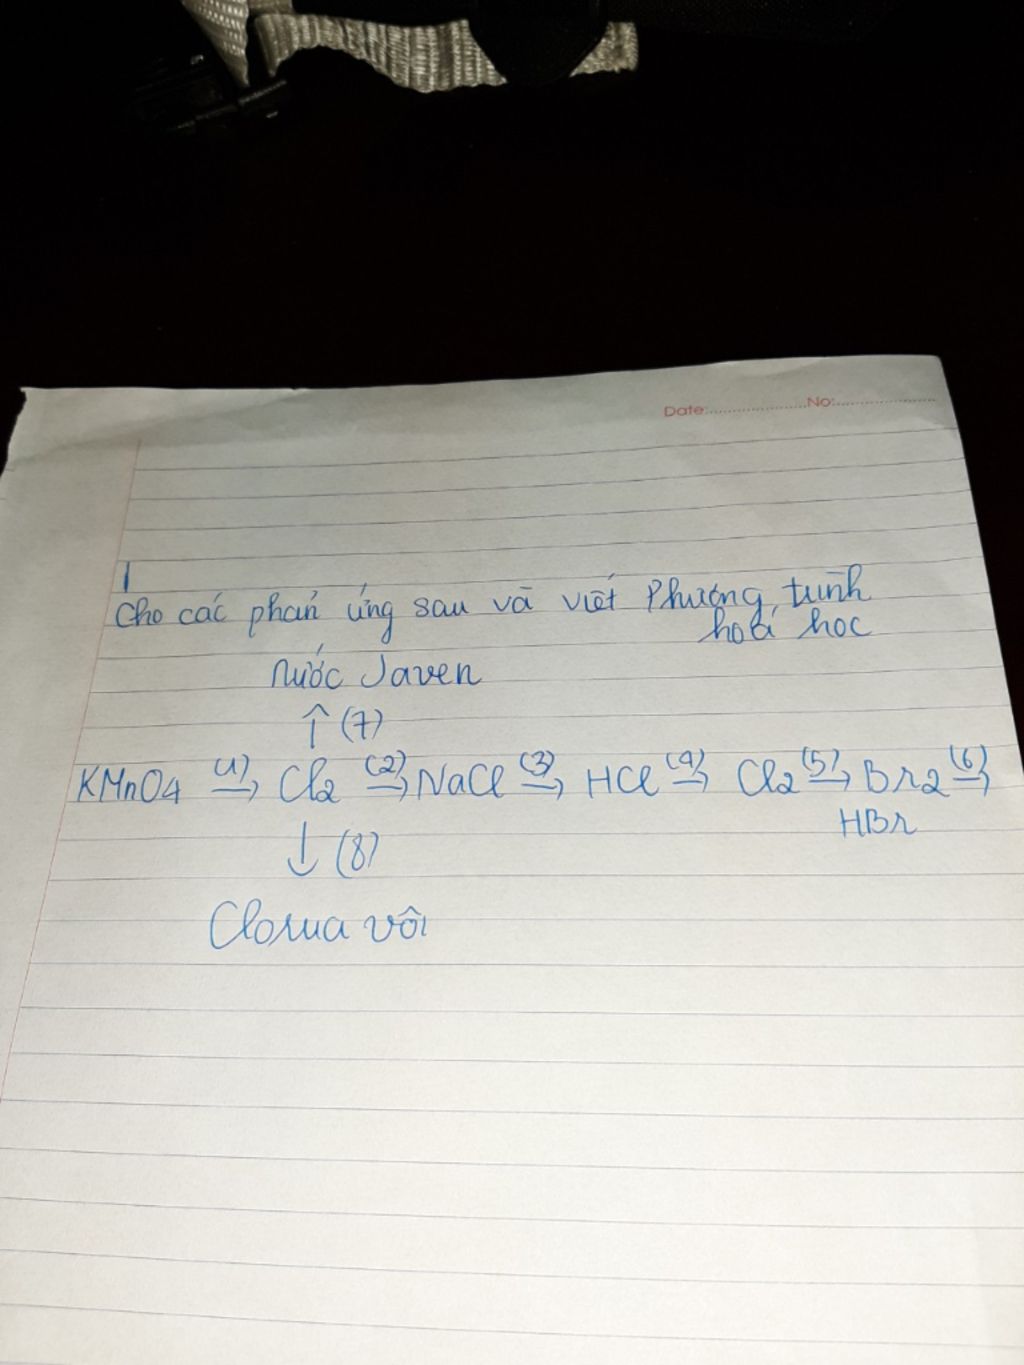 Date:.....................No:......................
Cho các phản ứng sau và viết Phương trình
hoá học
nước Javen
↑ (7)
KMnO4 (1)→ Cl2 (2)→ NaCl (3)→ HCl (4)→ Cl2 (5)→ Br2 (6)→
HBr
↓ (8)
Clorua vôi